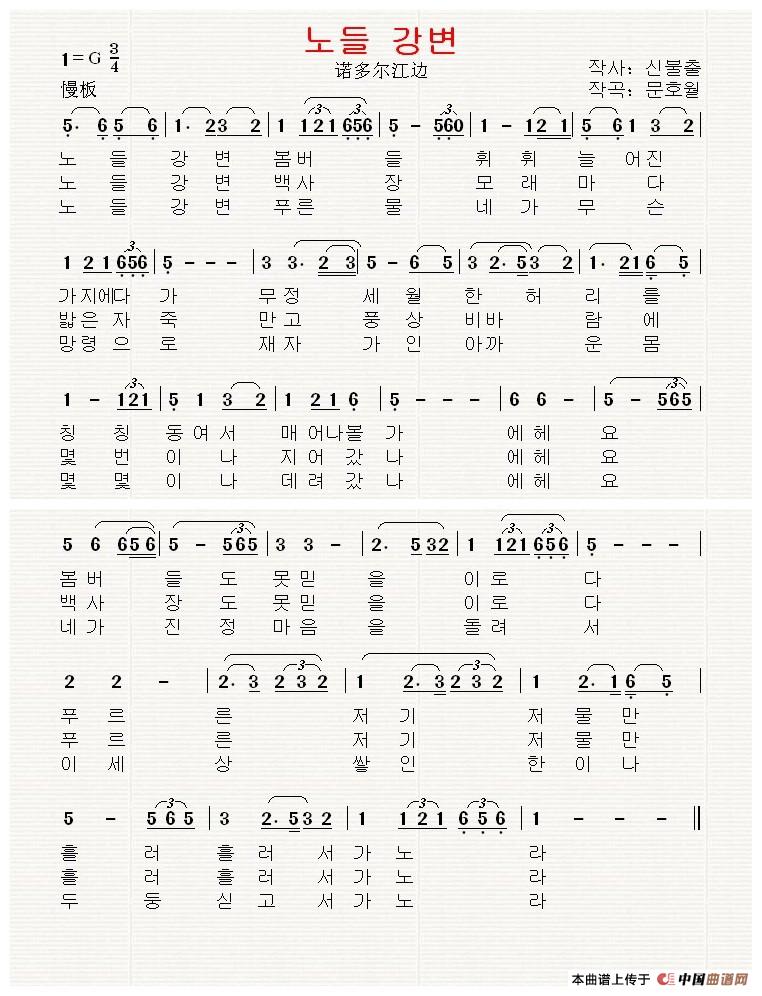 노들 강변
1=G 3/4
诺多尔江边
작사: 신불출
慢板
작곡: 문호월
5· 6 5 6 | 1· 23 2 | 1 121 656 | 5 - 560 | 1 - 12 1 | 5 6 1 3 2 |
노 들 강 변 봄버 들 휘휘 늘 어진
노 들 강 변 백사 장 모래 마 다
노 들 강 변 푸른 물 네가 무 슨
1 2 1 656 | 5 - - - | 3 3· 2 3 | 5 - 6 5 | 3 2· 53 2 | 1· 21 6 5 |
가지에다 가 무정 세월 한 허 리를
밟은 자 죽 만고 풍상 비바 람에
망령으로 재자 가인 아까 운 몸
1 - 121 | 5 1 3 2 | 1 21 6 | 5 - - - | 6 6 - | 5 - 565 |
칭 칭 동여서 매어나볼 가 에헤 요
몇 번 이 나 지어 갔 나 에헤 요
몇 몇 이 나 데려 갔 나 에헤 요
5 6 65 6 | 5 - 565 | 3 3 - | 2· 5 32 | 1 121 656 | 5 - - - |
봄버 들 도 못믿 을 이로 다
백사 장 도 못믿 을 이로 다
네가 진 정 마음 을 돌려 서
2 2 - | 2· 3 2 3 2 | 1 2· 3 2 3 2 | 1 2· 1 6 5 |
푸르 른 저기 저 물만
푸르 른 저기 저 물만
이세 상 쌓인 한이나
5 - 5 6 5 | 3 2· 53 2 | 1 1 2 1 6 5 6 | 1 - - - ‖
흘 러 흘 러 서 가 노 라
흘 러 흘 러 서 가 노 라
두 둥 싣 고 서 가 노 라
本曲谱上传于 中国曲谱网